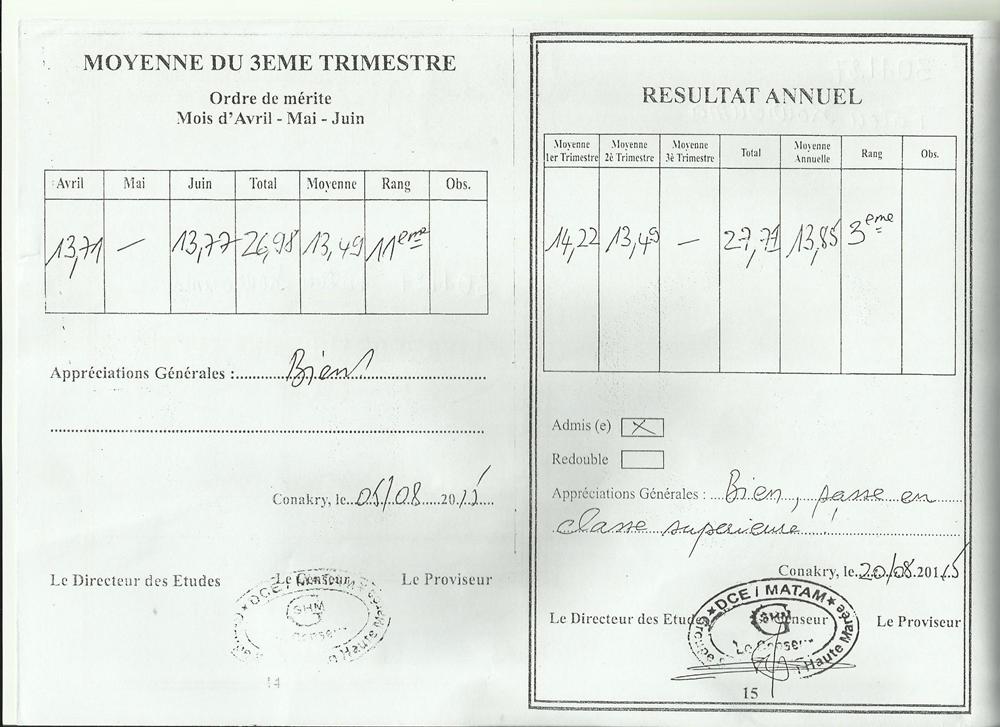 MOYENNE DU 3EME TRIMESTRE
Ordre de mérite
Mois d'Avril - Mai - Juin
Avril Mai Juin Total Moyenne Rang Obs.
13,71 — 13,77 26,98 13,49 11eme
Appréciations Générales : Bien !
Conakry, le 05/08 2015
Le Directeur des Etudes Le Censeur Le Proviseur
DCE /
GHM
Censeur
Haute Marée
14
RESULTAT ANNUEL
Moyenne 1er Trimestre Moyenne 2è Trimestre Moyenne 3è Trimestre Total Moyenne Annuelle Rang Obs.
14,22 13,49 — 27,71 13,85 3eme
Admis (e) X
Redouble
Appréciations Générales : Bien, passe en
classe superieure !
Conakry, le 20/08 2015
Le Directeur des Etudes Le Censeur Le Proviseur
DCE / MATAM
GHM
Le Censeur
Groupe Haute Marée
15